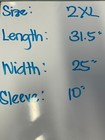 Size: 2XL
Length: 31.5"
Width: 25"
Sleeve: 10"